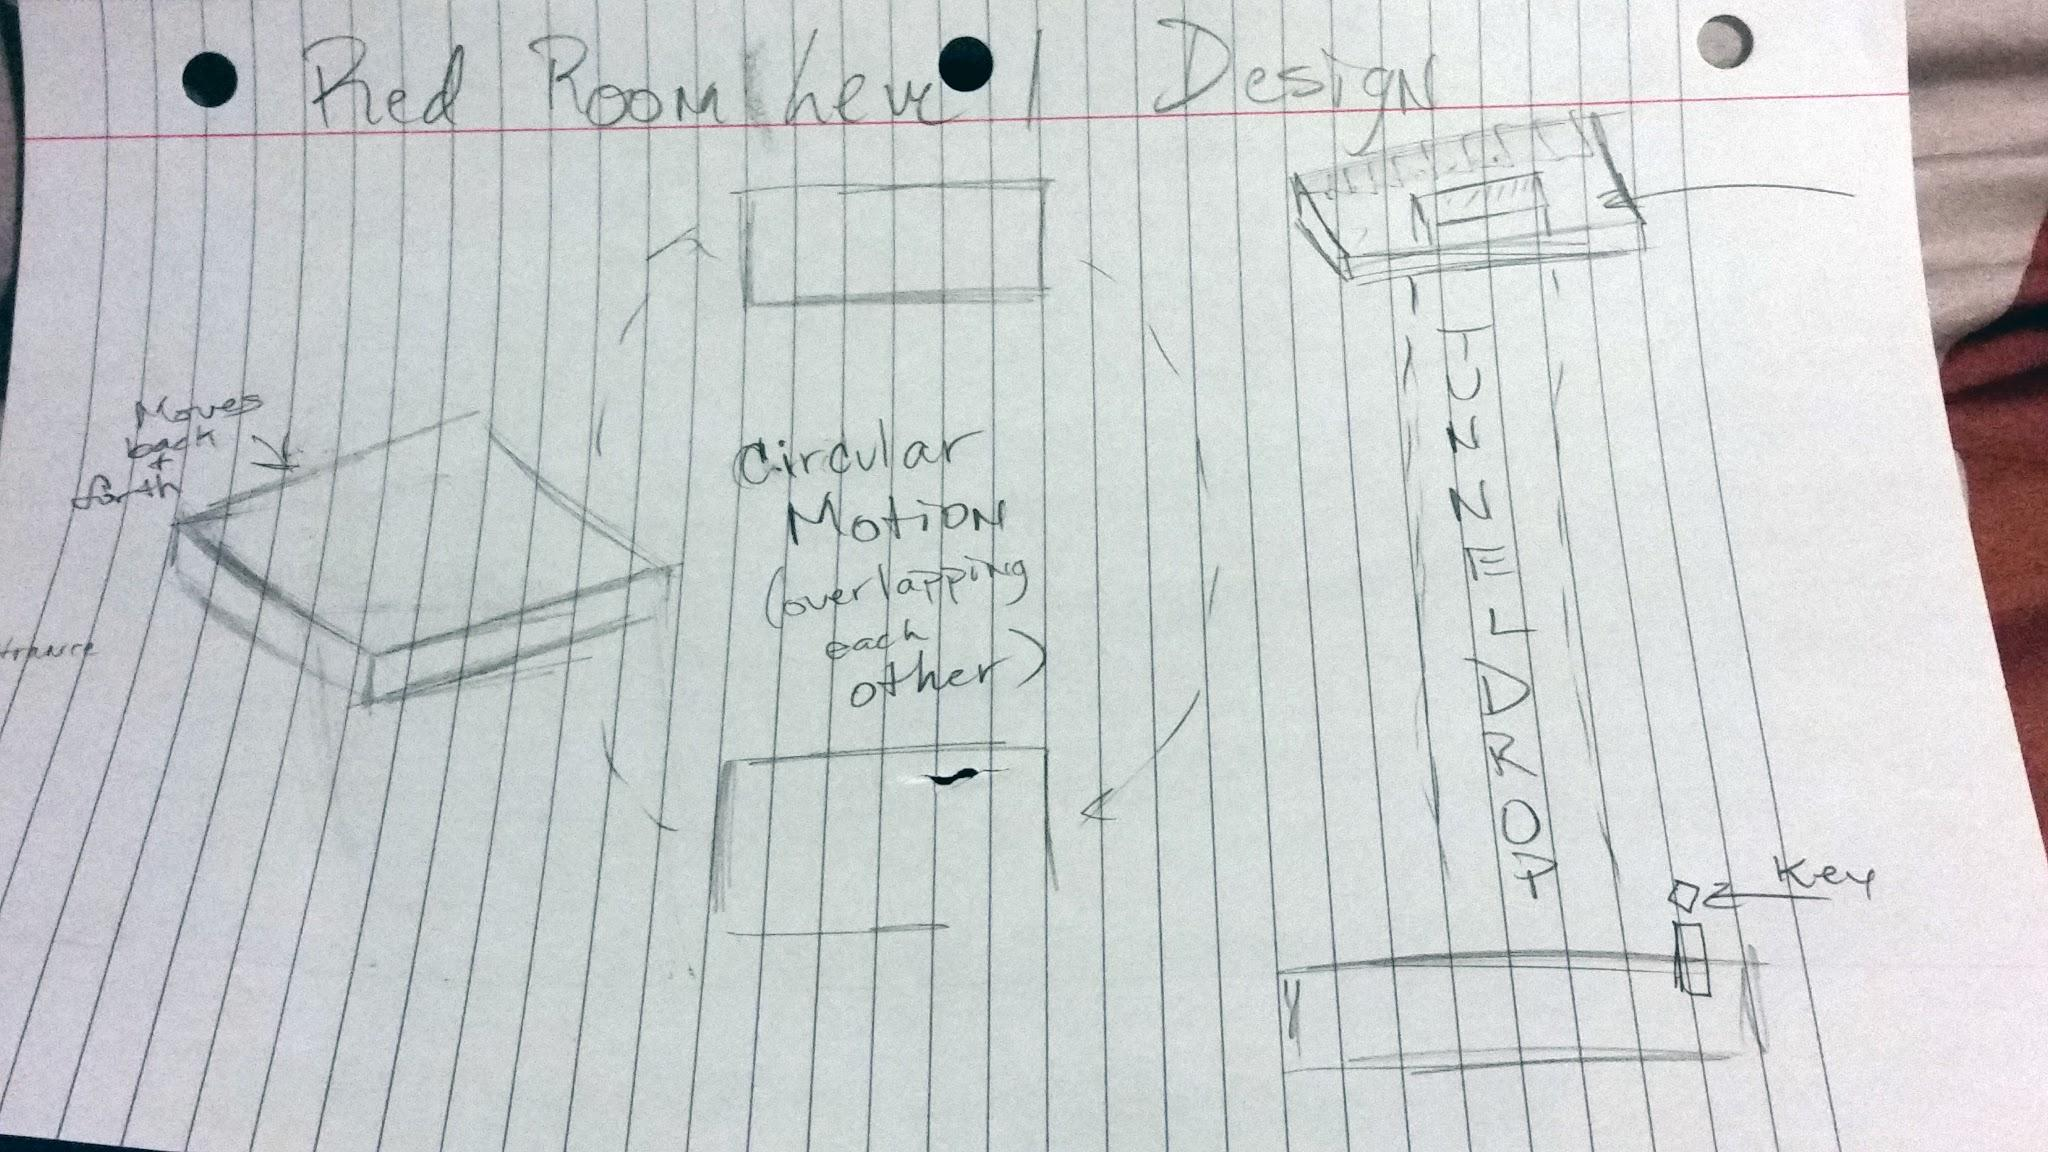 Red Room Level Design
Moves
back
+
forth
trance
Circular
Motion
(overlapping
each
other)
TUNNEL DROP
Key